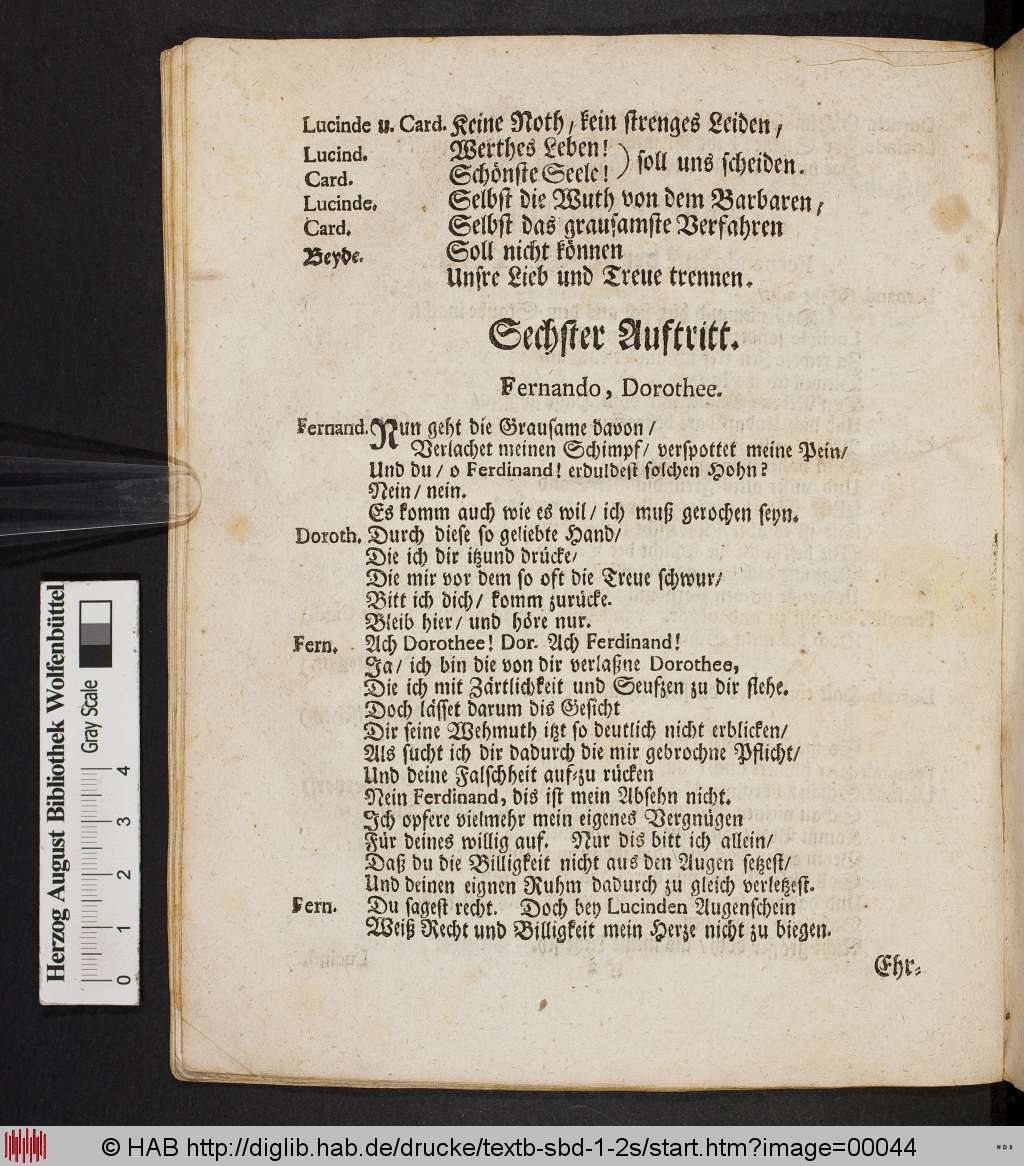 Lucinde u. Card. Keine Noth/ kein strenges Leiden/
Lucind. Werthes Leben! )
Card. Schönste Seele! ) soll uns scheiden.
Lucinde. Selbst die Wuth von dem Barbaren/
Card. Selbst das grausamste Verfahren
Beyde. Soll nicht können
Unsre Lieb und Treue trennen.
Sechster Auftritt.
Fernando, Dorothee.
Fernand. Nun geht die Grausame davon/
Verlachet meinen Schimpf/ verspottet meine Pein/
Und du/ o Ferdinand! erduldest solchen Hohn?
Nein/ nein.
Es komm auch wie es wil/ ich muß gerochen seyn.
Doroth. Durch diese so geliebte Hand/
Die ich dir itzund drücke/
Die mir vor dem so oft die Treue schwur/
Bitt ich dich/ komm zurücke.
Bleib hier/ und höre nur.
Fern. Ach Dorothee! Dor. Ach Ferdinand!
Ja/ ich bin die von dir verlaßne Dorothee,
Die ich mit Zärtlichkeit und Seufzen zu dir flehe.
Doch lässet darum dis Gesicht
Dir seine Wehmuth itzt so deutlich nicht erblicken/
Als sucht ich dir dadurch die mir gebrochne Pflicht/
Und deine Falschheit auf-zu rücken
Nein Ferdinand, dis ist mein Absehn nicht.
Ich opfere vielmehr mein eigenes Vergnügen
Für deines willig auf. Nur dis bitt ich allein/
Daß du die Billigkeit nicht aus den Augen setzest/
Und deinen eignen Ruhm dadurch zu gleich verletzest.
Fern. Du sagest recht. Doch bey Lucinden Augenschein
Weiß Recht und Billigkeit mein Herze nicht zu biegen.
Ehr-
Herzog August Bibliothek Wolfenbüttel
Gray Scale
0 1 2 3 4
© HAB http://diglib.hab.de/drucke/textb-sbd-1-2s/start.htm?image=00044